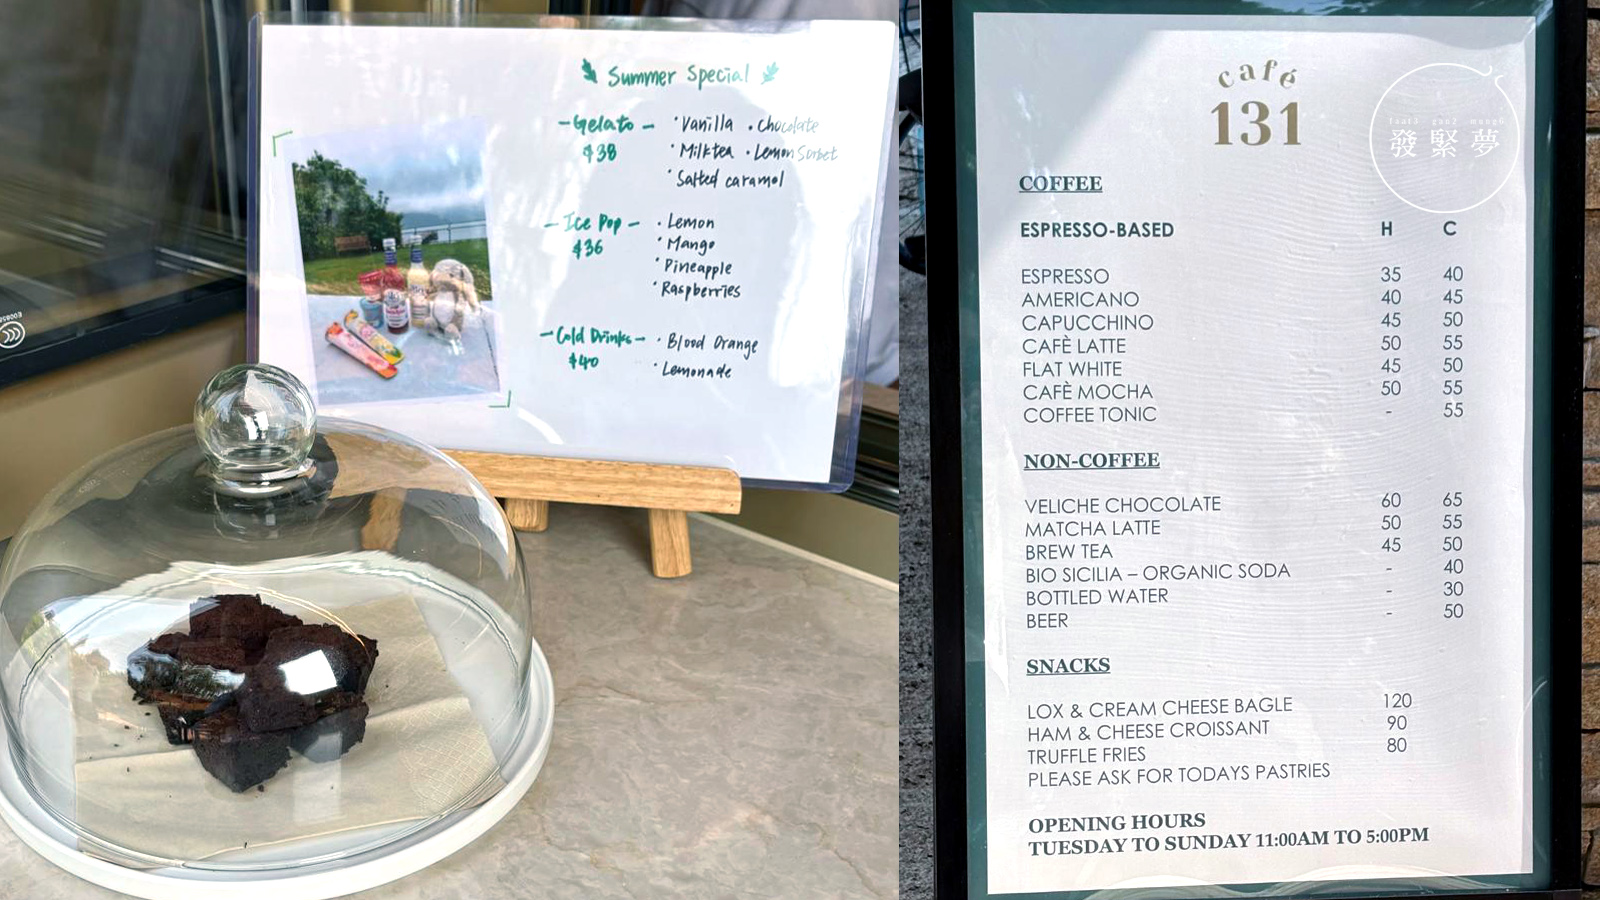 Summer Special
- Gelato - · Vanilla · Chocolate
$38 · Milktea · Lemon Sorbet
· Salted caramel
- Ice Pop - · Lemon
$36 · Mango
· Pineapple
· Raspberries
- Cold Drinks - · Blood Orange
$40 · Lemonade
café
131
發緊夢
COFFEE
ESPRESSO-BASED H C
ESPRESSO 35 40
AMERICANO 40 45
CAPUCCHINO 45 50
CAFÈ LATTE 50 55
FLAT WHITE 45 50
CAFÈ MOCHA 50 55
COFFEE TONIC - 55
NON-COFFEE
VELICHE CHOCOLATE 60 65
MATCHA LATTE 50 55
BREW TEA 45 50
BIO SICILIA – ORGANIC SODA - 40
BOTTLED WATER - 30
BEER - 50
SNACKS
LOX & CREAM CHEESE BAGLE 120
HAM & CHEESE CROISSANT 90
TRUFFLE FRIES 80
PLEASE ASK FOR TODAYS PASTRIES
OPENING HOURS
TUESDAY TO SUNDAY 11:00AM TO 5:00PM